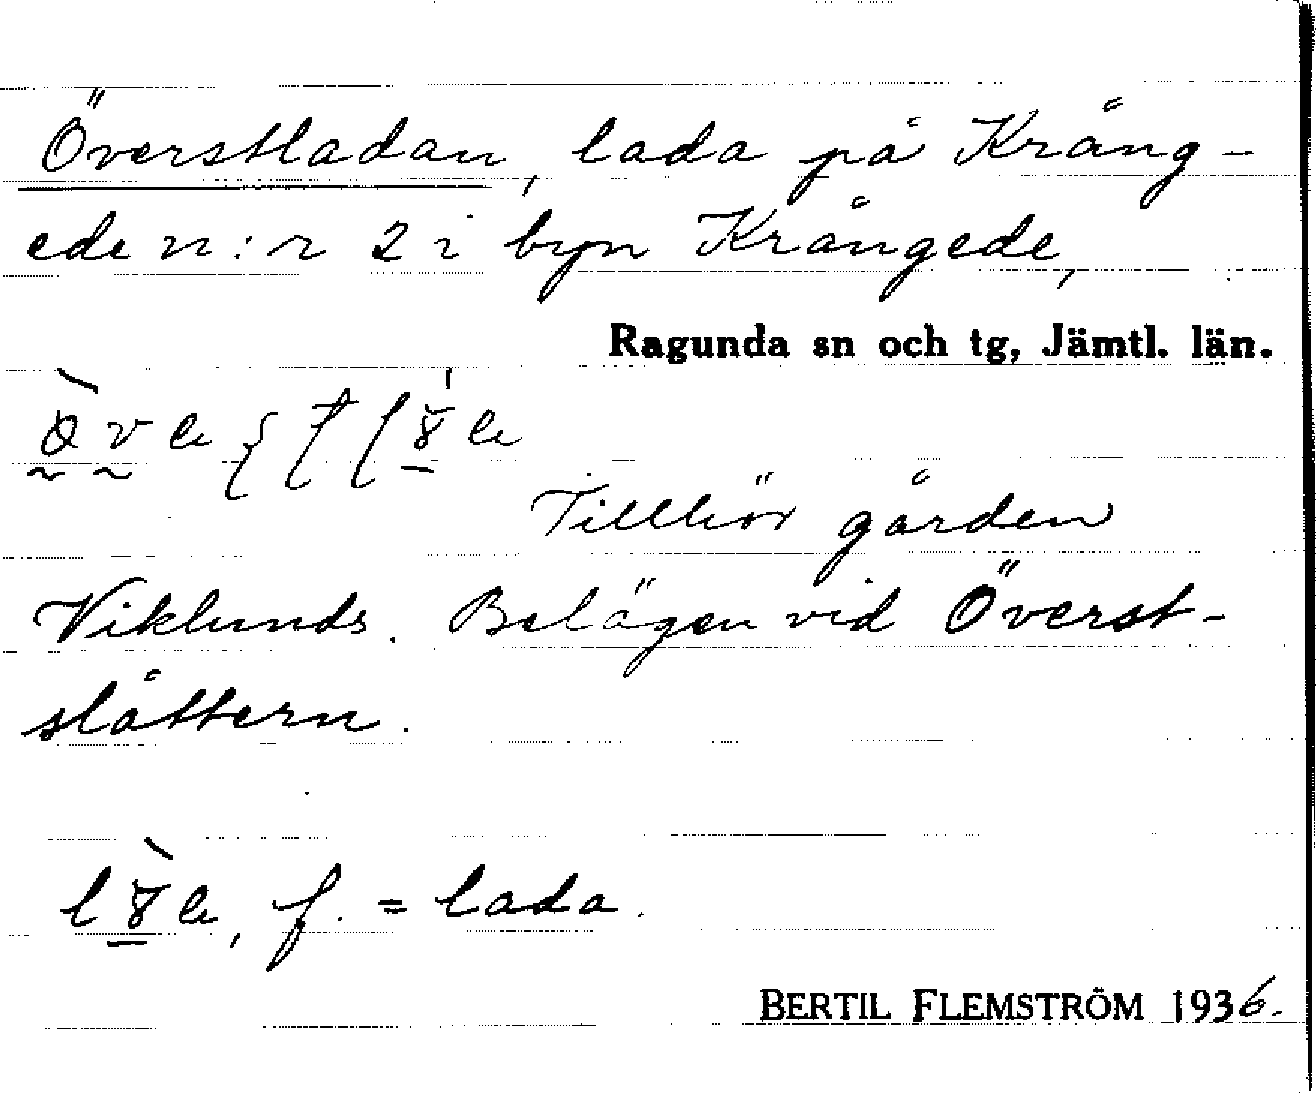 Överstladan, lada på Kräng-
ede n:r 2 i byn Krångede,
Ragunda sn och tg, Jämtl. län.
Tillhör gården
Viklunds. Belägen vid Överst-
slåttern.
f. = lada.
BERTIL FLEMSTRÖM 1936.